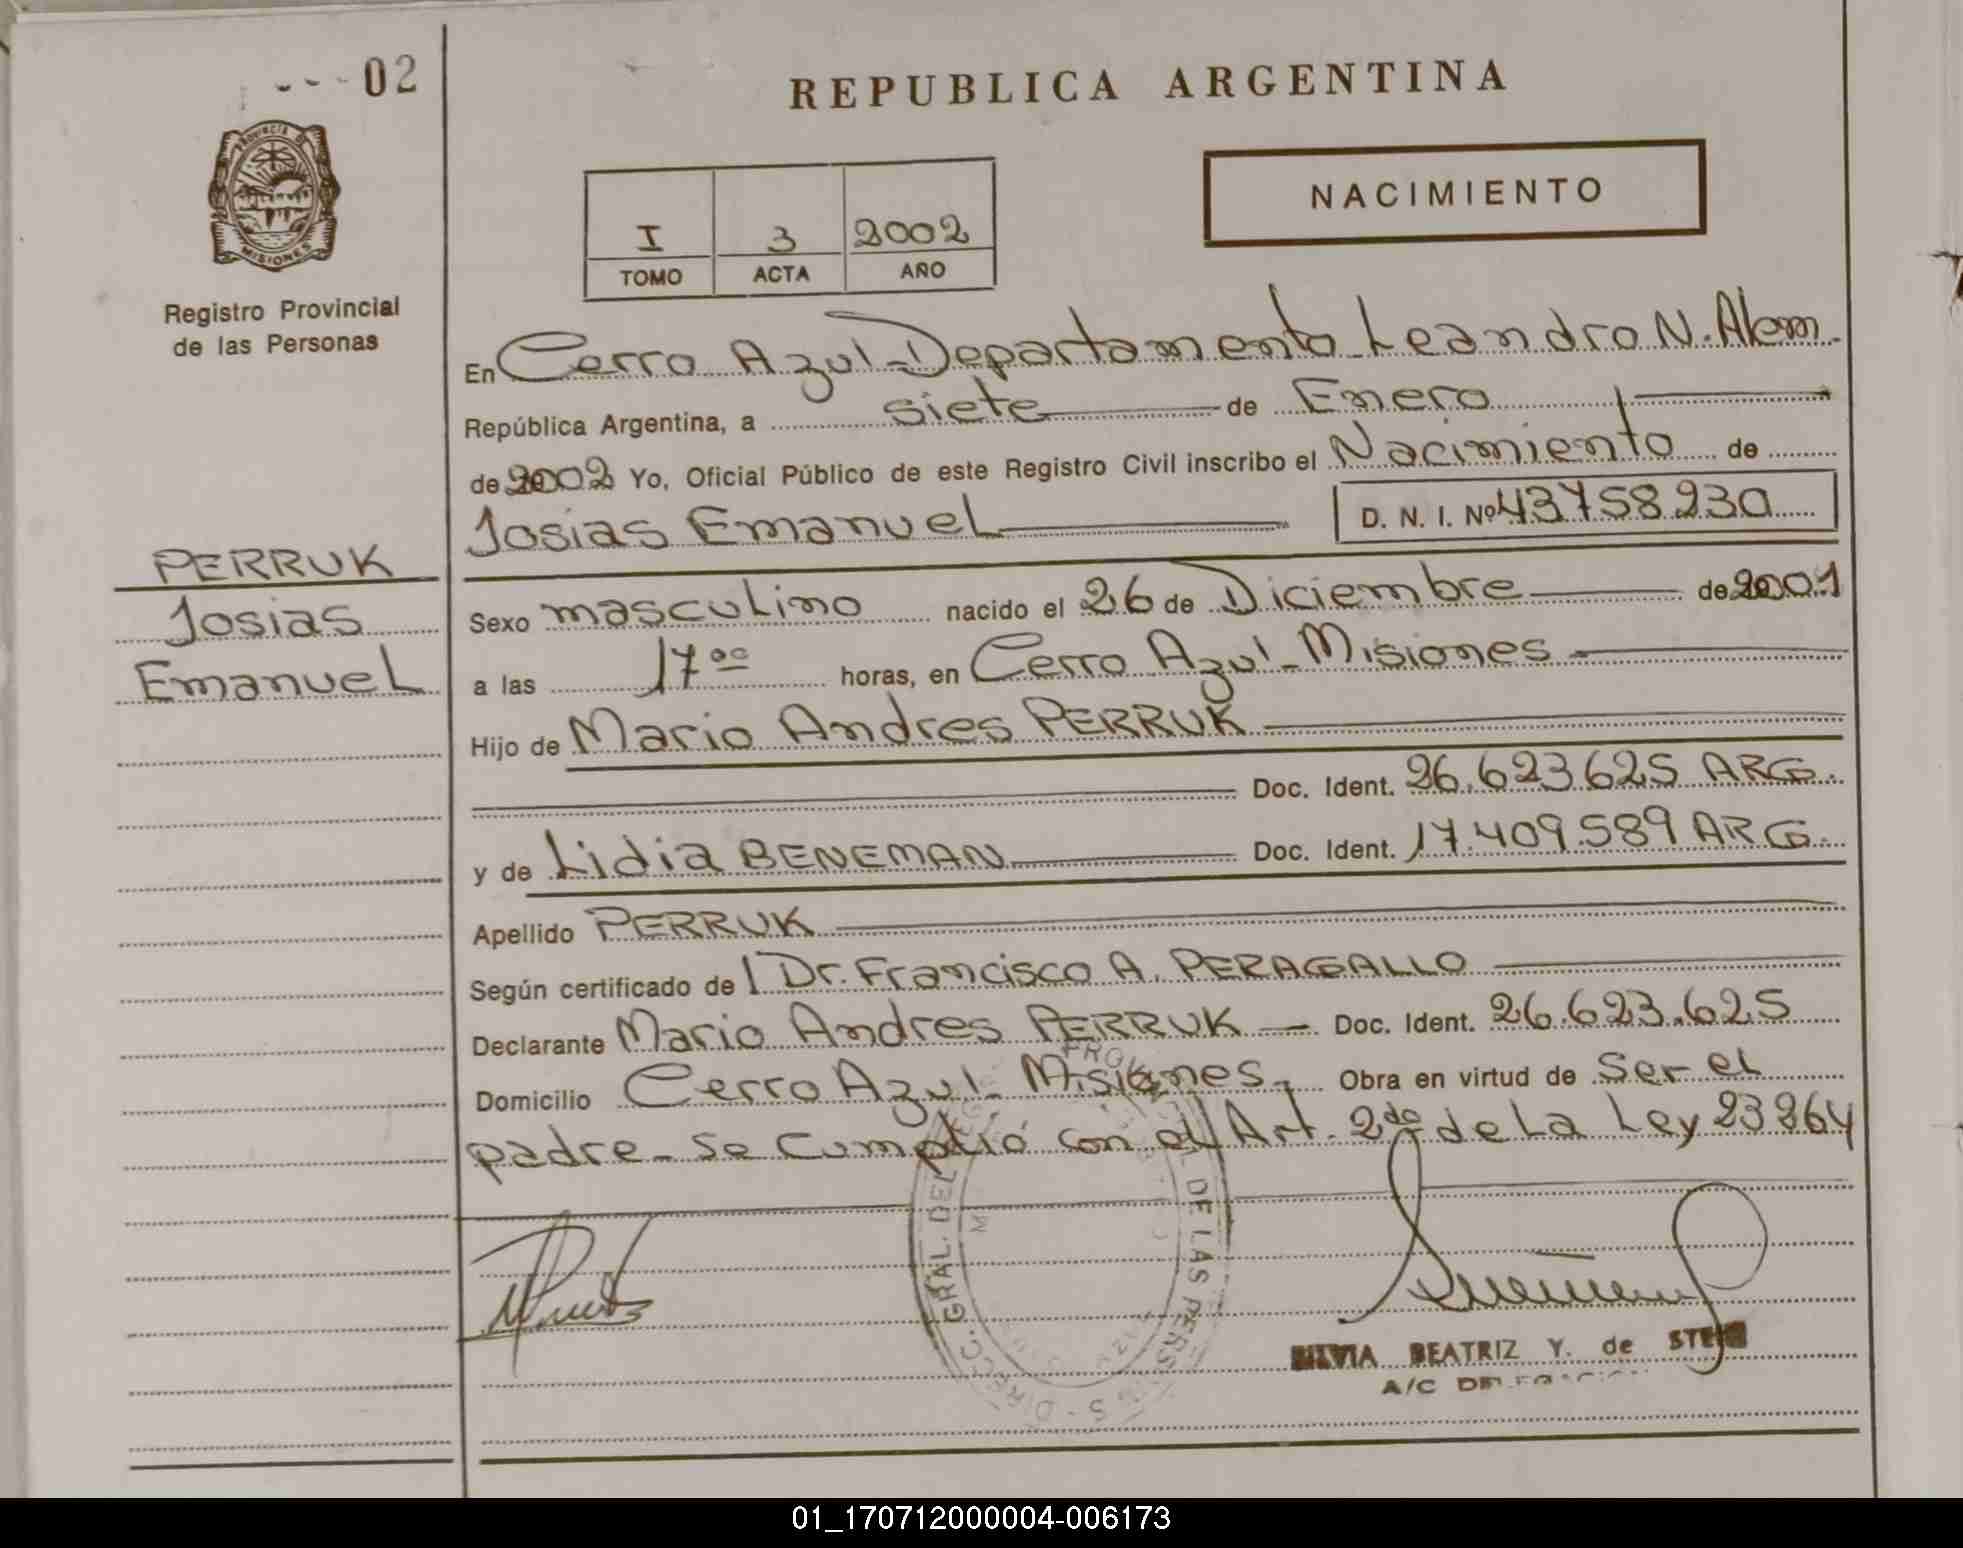 02
REPUBLICA ARGENTINA
PROVINCIA DE
MISIONES
Registro Provincial
de las Personas
NACIMIENTO
I 3 2002
TOMO ACTA AÑO
En Cerro Azul - Departamento Leandro N. Alem.
República Argentina, a siete de Enero
de 2002 Yo, Oficial Público de este Registro Civil inscribo el Nacimiento de
Josias Emanuel D. N. I. Nº 43758230
PERRUK
Josias
Emanuel
Sexo masculino nacido el 26 de Diciembre de 2001
a las 17 00 horas, en Cerro Azul - Misiones
Hijo de Mario Andres PERRUK
Doc. Ident. 26.623.625 ARG.
y de Lidia BENEMAN Doc. Ident. 17.409.589 ARG.
Apellido PERRUK
Según certificado de Dr. Francisco A. PERAGALLO
Declarante Mario Andres PERRUK Doc. Ident. 26.623.625
Domicilio Cerro Azul - Misiones Obra en virtud de ser el
padre - se cumplió con el Art. 2do de La Ley 23264
DIRECC. GRAL. DEL DE LAS PERS
SILVIA BEATRIZ Y. de
A/C
01_170712000004-006173